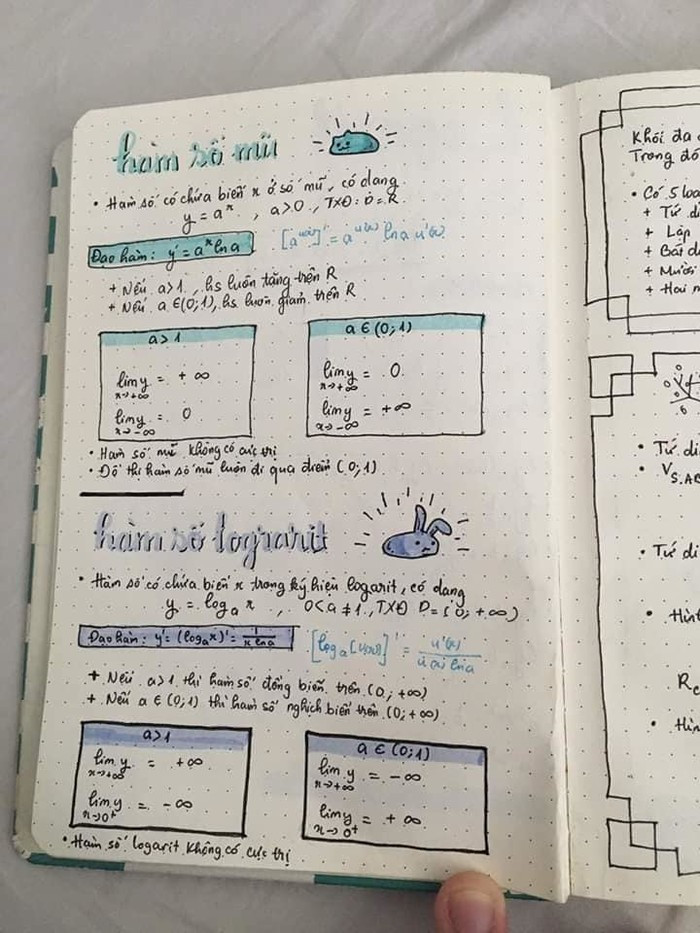 hàm số mũ
• Hàm số có chứa biến x ở số mũ, có dạng
y = aˣ , a>0 , TXĐ: D = R
Đạo hàm: y' = aˣ ln a
[a^u(x)]' = a^u(x) ln a u'(x)
+ Nếu a>1 , hs luôn tăng trên R
+ Nếu a ∈ (0;1), hs luôn giảm trên R
a>1
lim y = + ∞
x→+∞
lim y = 0
x→-∞
a ∈ (0;1)
lim y = 0
x→+∞
lim y = +∞
x→-∞
• Hàm số mũ không có cực trị
• Đồ thị hàm số mũ luôn đi qua điểm (0;1)
hàm số lograrit
• Hàm số có chứa biến x trong ký hiệu logarit, có dạng
y = logₐ x , 0<a≠1, TXĐ D=(0; +∞)
Đạo hàm: y' = (logₐx)' = 1/(x ln a)
[logₐ[u(x)]' = u'(x)/(u(x) ln a)
+ Nếu a>1 thì hàm số đồng biến trên (0; +∞)
+ Nếu a ∈ (0;1) thì hàm số nghịch biến trên (0; +∞)
a>1
lim y = +∞
x→+∞
lim y = -∞
x→0⁺
a ∈ (0;1)
lim y = -∞
x→+∞
lim y = +∞
x→0⁺
• Hàm số logarit không có cực trị
Khối đa
Trong đó
• Có 5 loạ
+ Tứ di
+ Lập
+ Bát d
+ Mười
+ Hai m
• Tứ di
• V S.AB
• Tứ di
• Hìn
R
• Hìn